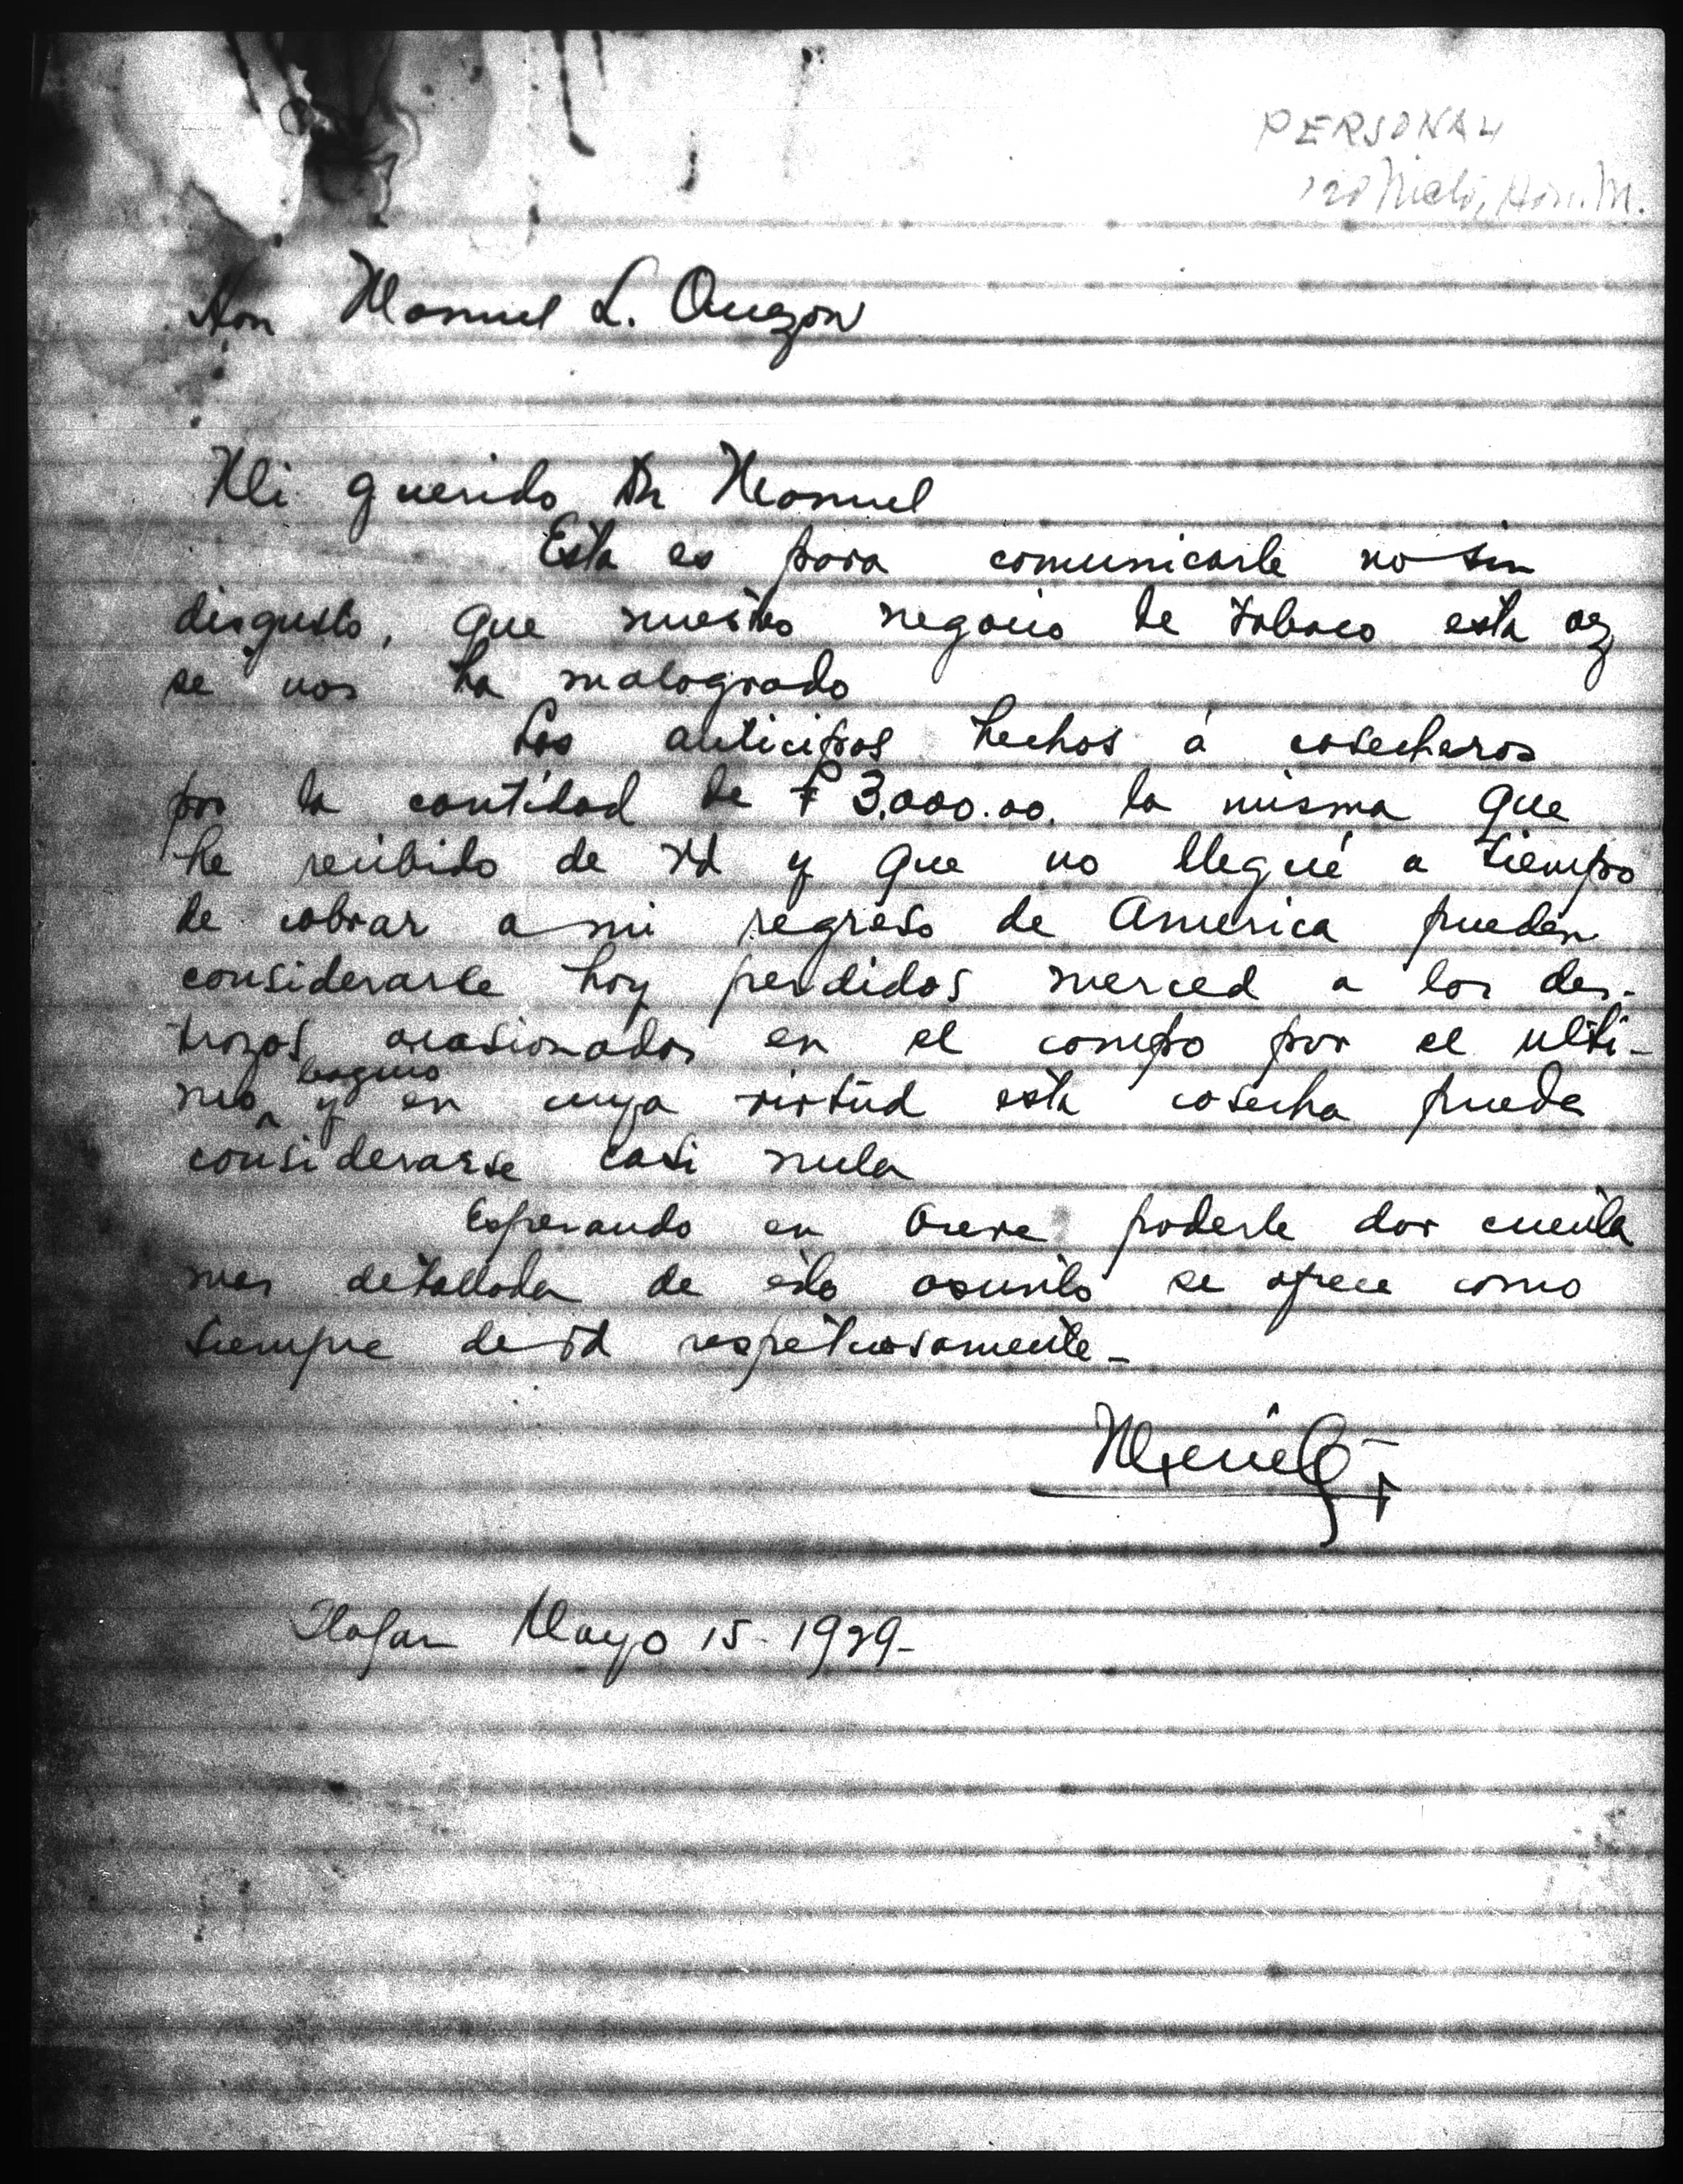 PERSONAL
Nieto, Hon. M.
Hon Manuel L. Quezon
Mi querido Dn Manuel
Esta es para comunicarle no sin
disgusto, que nuestro negocio de tabaco esta vez
se nos ha malogrado
Los anticipos hechos á cosecheros
por la cantidad de ₱ 3.000.00. la misma que
he recibido de Vd y que no llegué a tiempo
de cobrar a mi regreso de America pueden
considerarse hoy perdidos merced a los des-
trozos ocasionados en el campo por el ulti-
mo baguio y en cuya virtud esta cosecha puede
considerarse casi nula
Esperando en breve poderle dar cuenta
mas detallada de este asunto se ofrece como
siempre de Vd respetuosamente-
Ilagan Mayo 15- 1929-